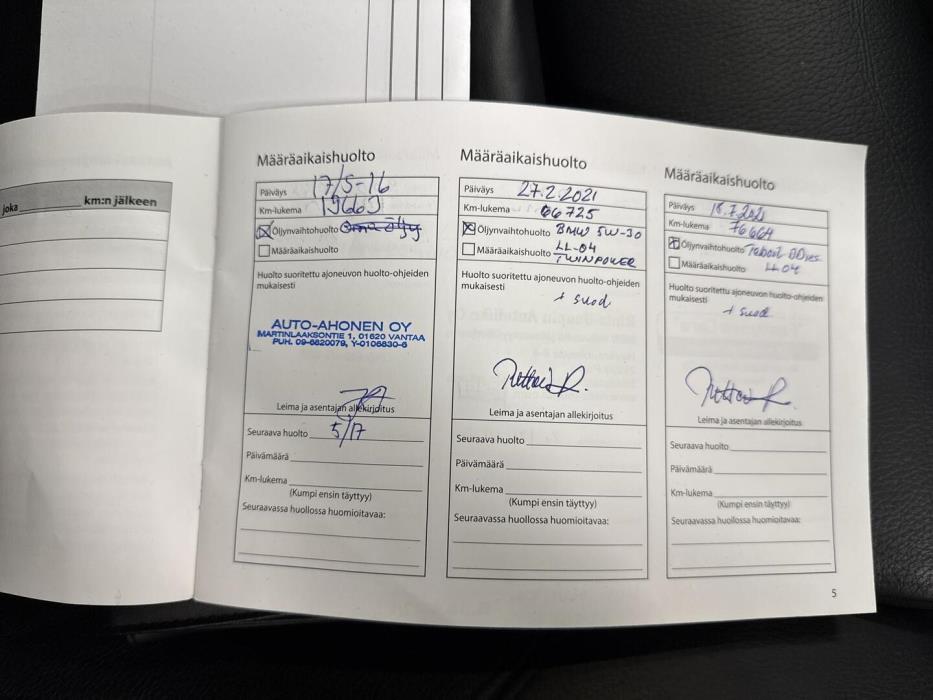 joka km:n jälkeen
Määräaikaishuolto
Päiväys 17/5-16
Km-lukema 19663
Öljynvaihtohuolto Oma öljy
Määräaikaishuolto
Huolto suoritettu ajoneuvon huolto-ohjeiden
mukaisesti
AUTO-AHONEN OY
MARTINLAAKSONTIE 1, 01620 VANTAA
PUH. 09-6820079, Y-0106830-6
Leima ja asentajan allekirjoitus
Seuraava huolto 5/17
Päivämäärä
Km-lukema
(Kumpi ensin täyttyy)
Seuraavassa huollossa huomioitavaa:
Määräaikaishuolto
Päiväys 27.2.2021
Km-lukema 66725
Öljynvaihtohuolto BMW 5W-30
Määräaikaishuolto LL-04
TWINPOWER
Huolto suoritettu ajoneuvon huolto-ohjeiden
mukaisesti
+ suod
Leima ja asentajan allekirjoitus
Seuraava huolto
Päivämäärä
Km-lukema
(Kumpi ensin täyttyy)
Seuraavassa huollossa huomioitavaa:
Määräaikaishuolto
Päiväys 18.7.2021
Km-lukema 76664
Öljynvaihtohuolto
Määräaikaishuolto LL04
Huolto suoritettu ajoneuvon huolto-ohjeiden
mukaisesti
+ suod
Leima ja asentajan allekirjoitus
Seuraava huolto
Päivämäärä
Km-lukema
(Kumpi ensin täyttyy)
Seuraavassa huollossa huomioitavaa:
5